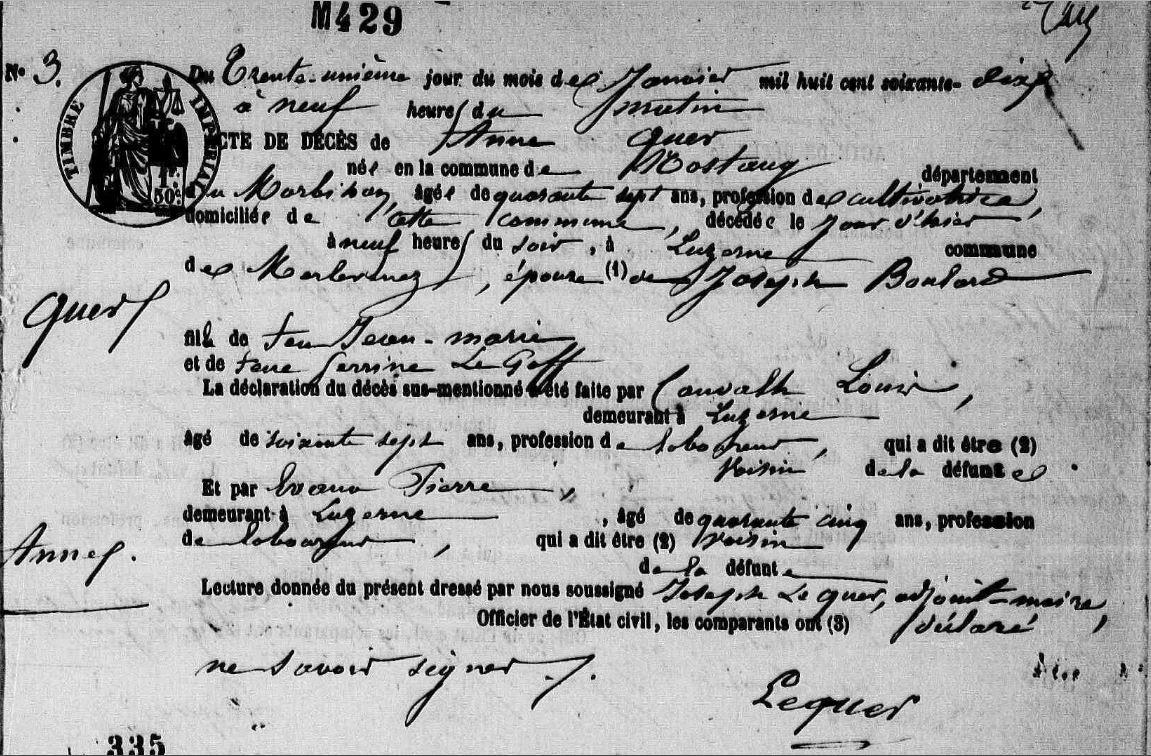 M429
N° 3.
TIMBRE IMPÉRIAL
50 c.
Du Trente-unième jour du mois de Janvier mil huit cent soixante-dix
à neuf heures du matin
ACTE DE DÉCÈS de Anne Quer
née en la commune de département
du Morbihan, âgée de quarante sept ans, profession de cultivatrice,
domiciliée de cette commune, décédée le jour d'hier
à neuf heures du soir, à Luzerne commune
de Merlevenez, épouse (1) de Joseph Boulard
Quer
fille de feu Jean-marie
et de feue perrine Le Goff
La déclaration du décès sus-mentionné a été faite par Louis,
demeurant à Luzerne
âgé de soixante sept ans, profession de laboureur, qui a dit être (2)
Voisin de la défunte
Et par Evano Pierre,
demeurant à Luzerne, âgé de quarante cinq ans, profession
de laboureur, qui a dit être (2) Voisin
Anne.
de la défunte
Lecture donnée du présent dressé par nous soussigné Joseph Le quer, adjoint-maire,
Officier de l'État civil, les comparants ont (3) déclaré
ne savoir signer.
Lequer
335